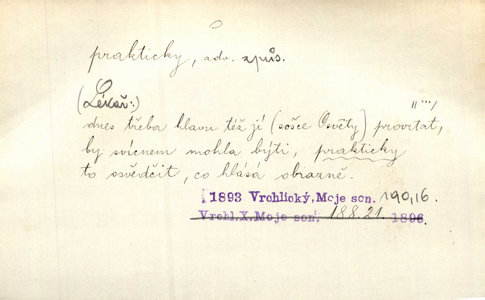 prakticky, adv. způs.
(Lékař:)
dnes třeba hlavu též jí (sošce Osvěty) provrtat,
by svícnem mohla býti, prakticky
to osvědčit, co hlásá obrazně.
1893 Vrchlický, Moje son. 190,16.
Vrchl.X.Moje son. 188.21. 1896.